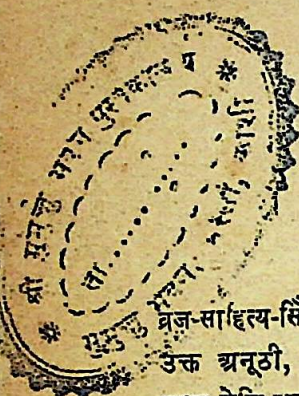 श्री मुमुक्षु भवन पुस्तकालय
ता.
मुमुक्षु भवन, अस्सी, काशी
ब्रज-साहित्य-सि
उक्त अनूठी,